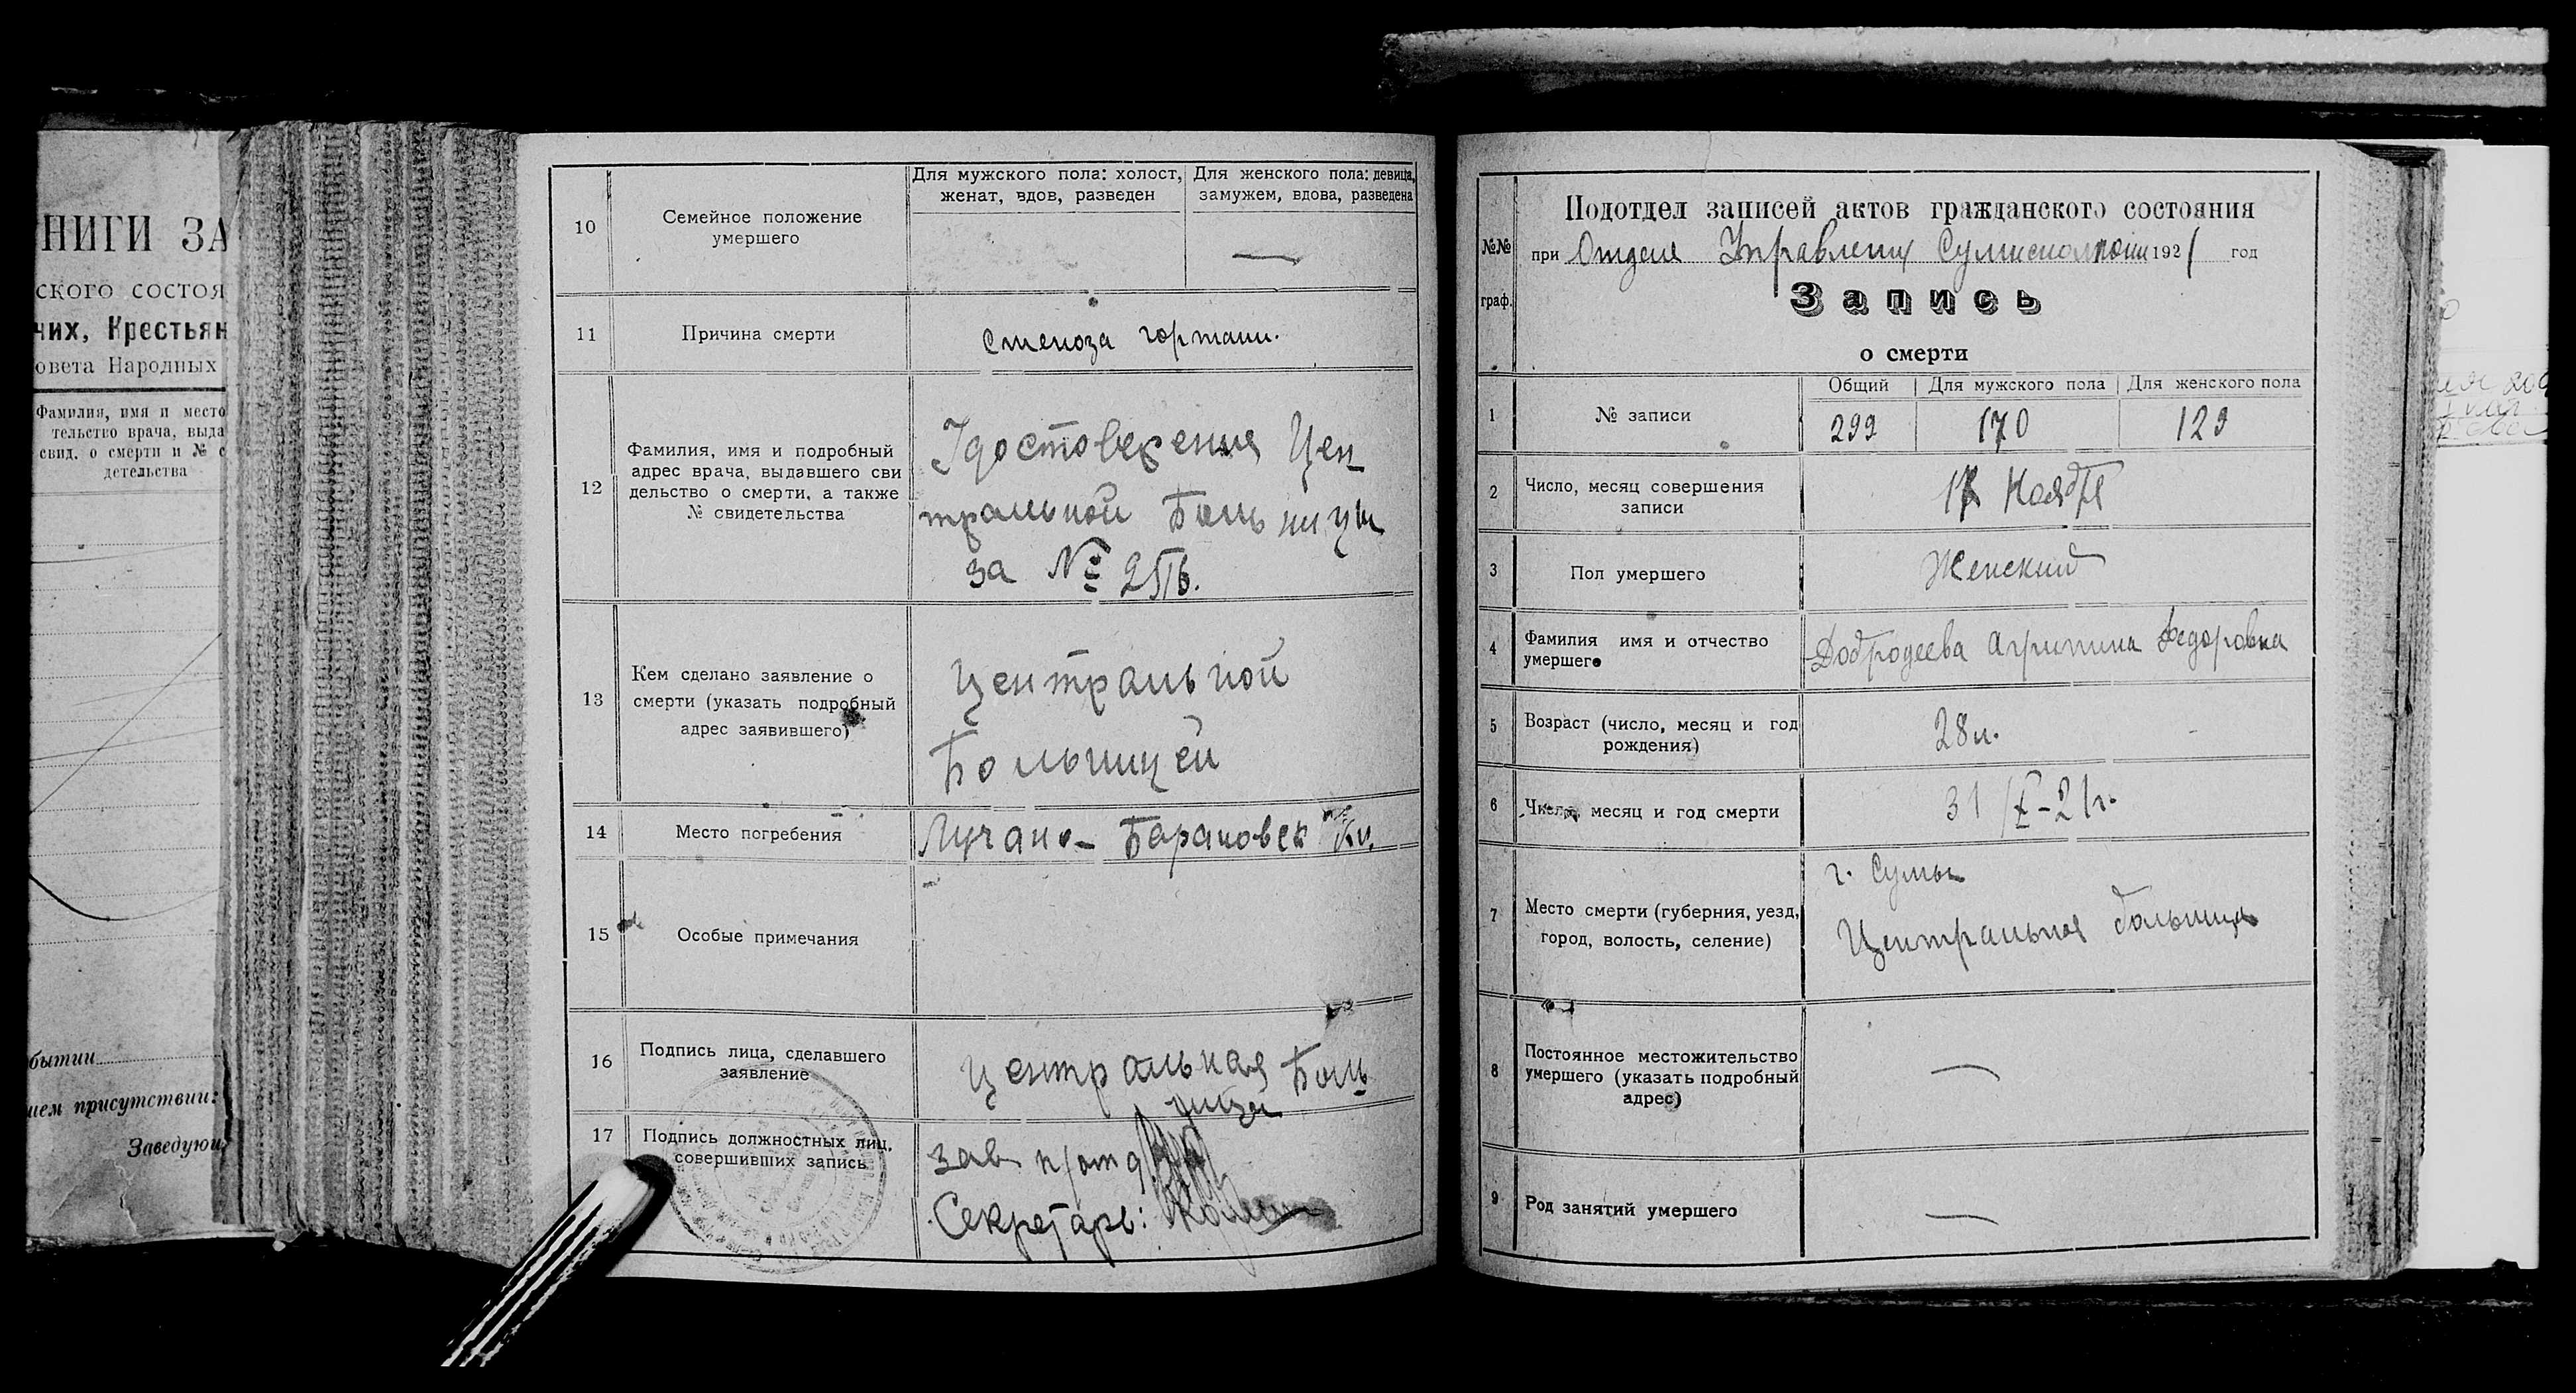 НИГИ ЗА
СКОГО СОСТОЯ
чих, Крестьян
овета Народных
Фамилия, имя и место
тельство врача, выда
свид. о смерти и № с
детельства
бытии
ием присутствии:
Заведующ
10
Семейное положение
умершего
Для мужского пола: холост,
женат, вдов, разведен
Для женского пола: девица,
замужем, вдова, разведена
—
11
Причина смерти
Стеноза гортани.
12
Фамилия, имя и подробный
адрес врача, выдавшего сви
дельство о смерти, а также
№ свидетельства
Удостоверения Цен
тральной Больницы
за № 2516.
13
Кем сделано заявление о
смерти (указать подробный
адрес заявившего)
Центральной
Больницей
14
Место погребения
Лучано- Барановск кл.
15
Особые примечания
16
Подпись лица, сделавшего
заявление
Центральная Боль
ница
17
Подпись должностных лиц,
совершивших запись
зав п/отд
Секретарь:
№№
граф.
Подотдел записей актов гражданского состояния
при Отделе Управления Сумисполкома 1921 год
Запись
о смерти
1
№ записи
Общий
Для мужского пола
Для женского пола
299
170
129
2
Число, месяц совершения
записи
17 Ноября
3
Пол умершего
Женский
4
Фамилия имя и отчество
умершего
Добродеева Агрипина Федоровна
5
Возраст (число, месяц и год
рождения)
28 л.
6
Число, месяц и год смерти
31/X-21г.
7
Место смерти (губерния, уезд,
город, волость, селение)
г. Сумы
Центральная больница
8
Постоянное местожительство
умершего (указать подробный
адрес)
—
9
Род занятий умершего
—